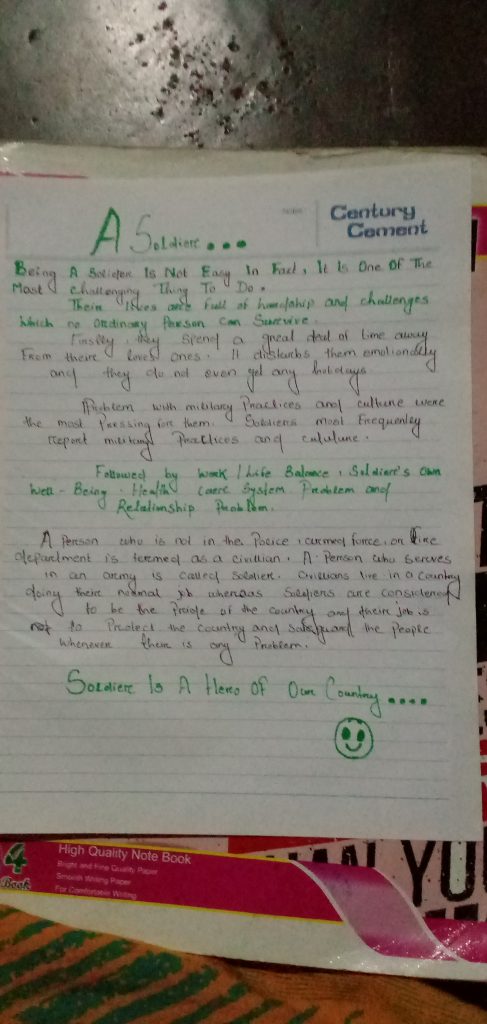 Century
Cement
A Soldier...
Being A Soldier Is Not Easy In Fact, It Is One Of The
Most Challenging Thing To Do.
Their lives are full of hardship and challenges
Which no Ordinary Person Can Survive.
Firstly, they spend a great deal of time away
From their loves ones. It disturbs them emotionally
and they do not even get any holidays.
Problem with military Practices and culture were
the most Pressing for them. Soldiers most Frequently
report military Practices and culuture.
Followed by Work/Life Balance, Soldier's Own
Well-Being, Health Care System Problem and
Relationship Problem.
A Person who is not in the Police, armed force, or Fire
department is teremed as a civillian. A Person who serves
in an army is called Soldier. Civilians live in a country
doing there normal job whereas Soldiers are considered
to be the Pride of the country and their job is
to Protect the country and safeguard the People
Whenever there is any Problem.
Soldier Is A Hero Of Our Country....
4
Book
High Quality Note Book
Bright and Fine Quality Paper
Smooth Writing Paper
For Comfortable Writing
AN YOU